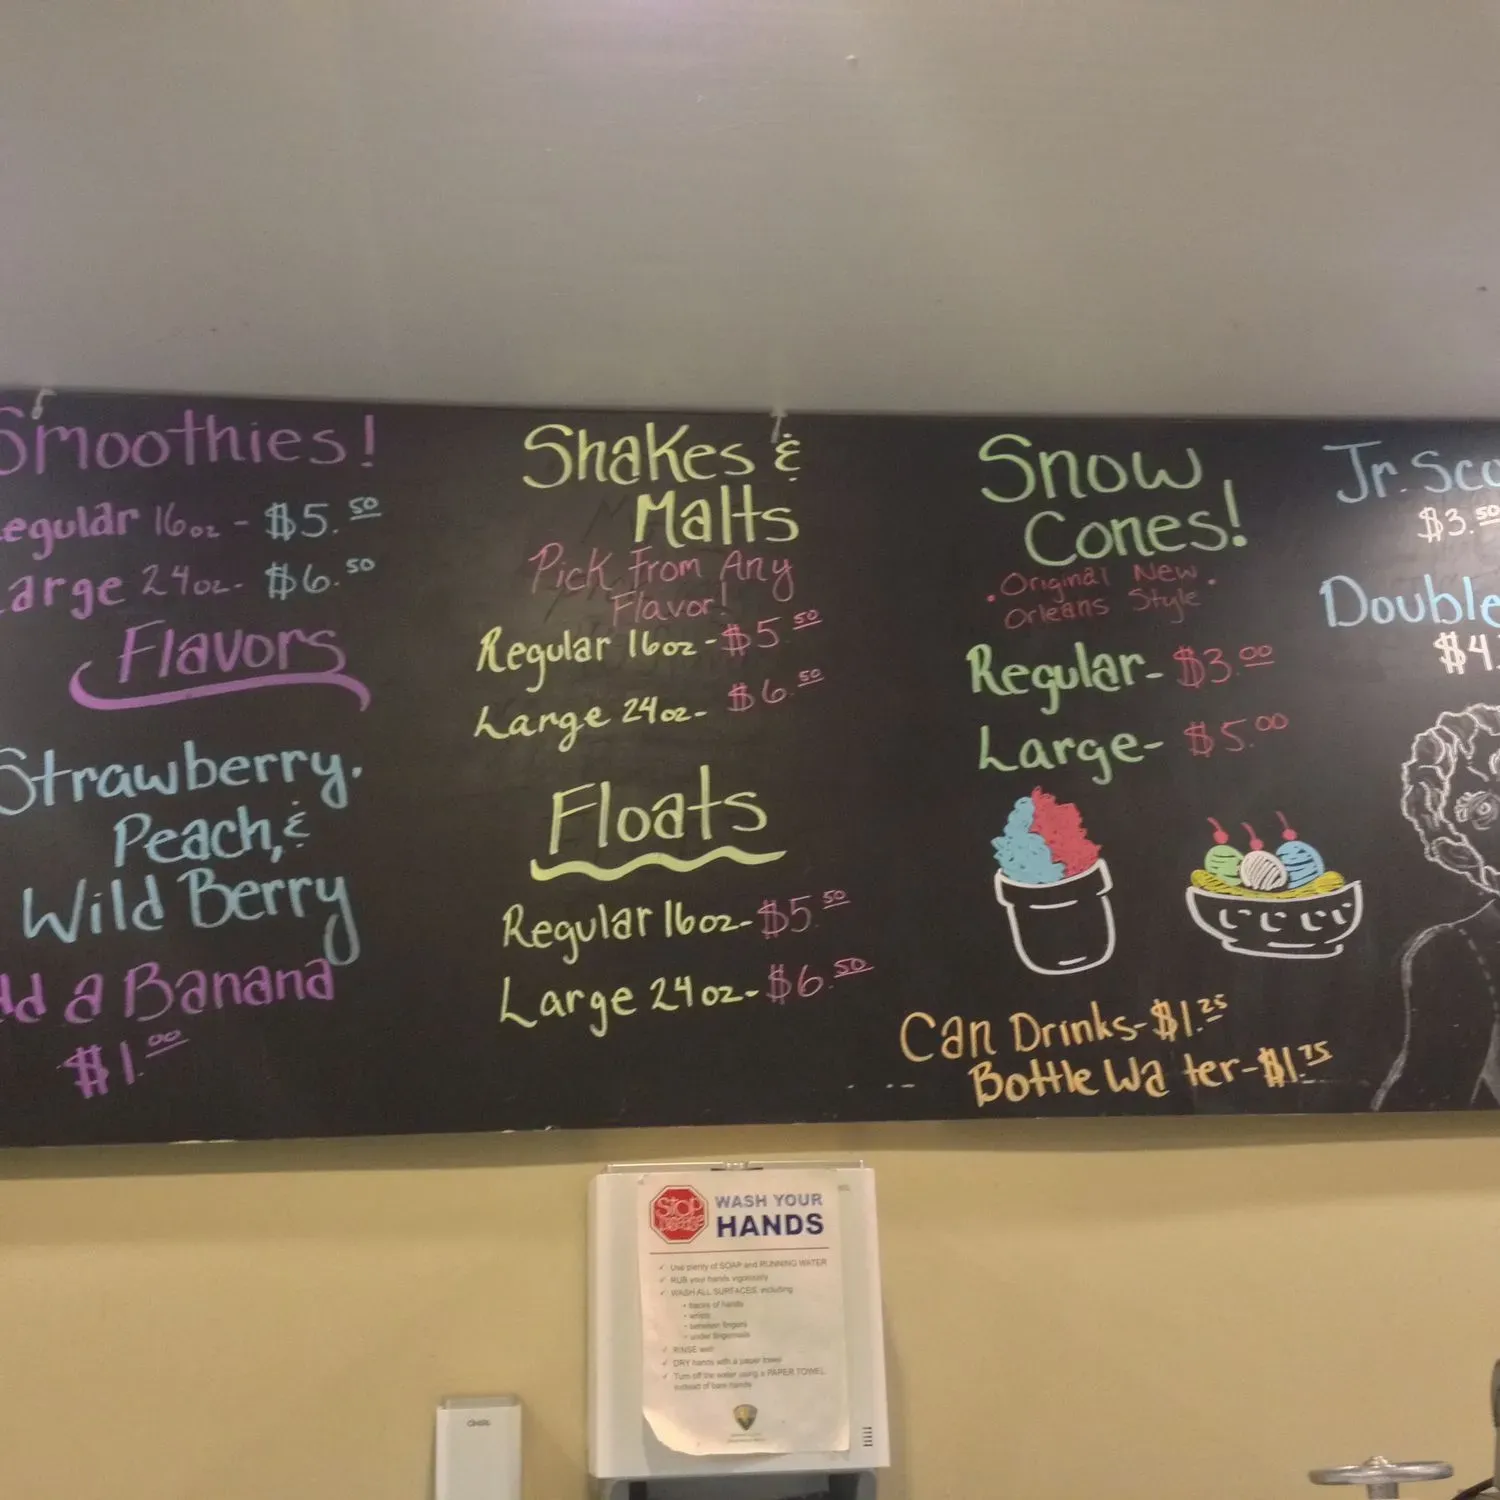 Smoothies!
Regular 16oz - $5.50
Large 24oz- $6.50
Flavors
Strawberry,
Peach, &
Wild Berry
Add a Banana
$1.00
Shakes &
Malts
Pick From Any
Flavor!
Regular 16oz - $5.50
Large 24oz- $6.50
Floats
Regular 16oz- $5.50
Large 24oz- $6.50
Snow
Cones!
. Original New .
Orleans Style
Regular- $3.00
Large- $5.00
Can Drinks- $1.25
Bottle Water- $1.75
Jr. Sco
$3.50
Double
$4.
STOP
WASH YOUR
HANDS
✓ Use plenty of SOAP and RUNNING WATER
✓ RUB your hands vigorously
✓ WASH ALL SURFACES, including
• backs of hands
• wrists
• between fingers
• under fingernails
✓ RINSE well
✓ DRY hands with a paper towel
✓ Turn off the water using a PAPER TOWEL
instead of bare hands